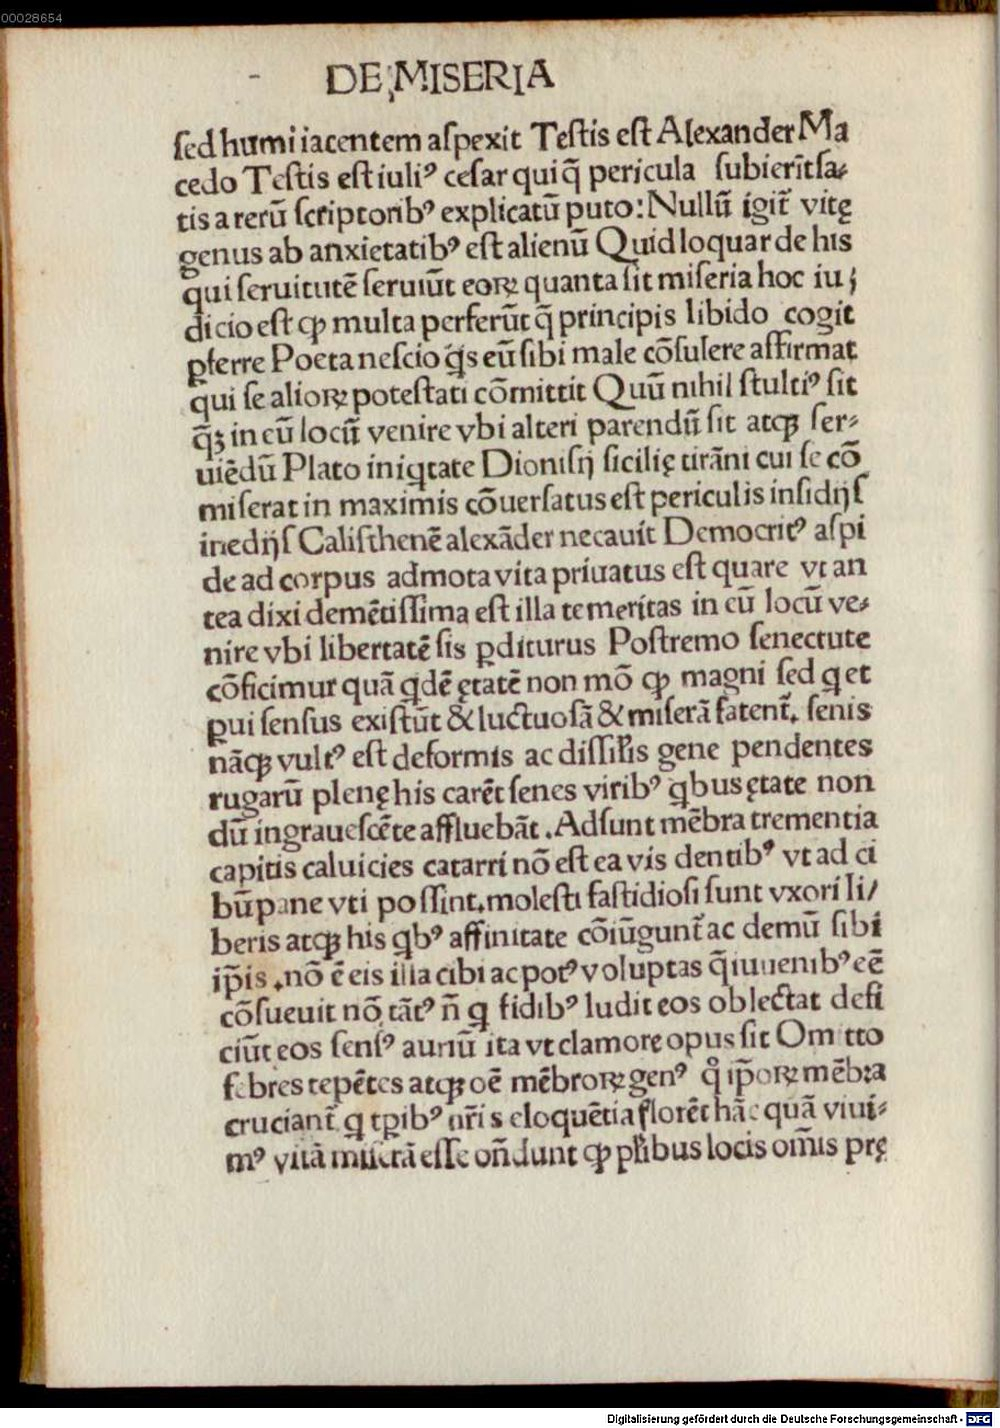 00028654
DE MISERIA
ſed humi iacentem aſpexit Teſtis eſt Alexander Ma
cedo Teſtis eſt iuliꝰ ceſar qui q̃ pericula ſubierĩt ſa⸗
tis a rerũ ſcriptoribꝰ explicatũ puto: Nullũ igit̃ vitę
genus ab anxietatibꝰ eſt alienũ Quid loquar de his
qui ſeruitutẽ ſeruiũt eoꝝ quanta ſit miſeria hoc iu⸗
dicio eſt ꝙ multa perferũt q̃ principis libido cogit
ꝑferre Poeta neſcio q̇s eũ ſibi male cõſulere affirmat
qui ſe alioꝝ poteſtati cõmittit Quũ nihil ſtultiꝰ ſit
q̃ꝫ in eũ locũ venire vbi alteri parendũ ſit atqꝫ ſer⸗
uiẽdũ Plato iniqtate Dioniſij ſicilię tirãni cui ſe cõ
miſerat in maximis cõuerſatus eſt periculis inſidijſ
inedijſ Caliſthenẽ alexãder necauit Democritꝰ aſpi
de ad corpus admota vita priuatus eſt quare vt an
tea dixi demẽtiſſima eſt illa temeritas in eũ locũ ve⸗
nire vbi libertatẽ ſis ꝑditurus Poſtremo ſenectute
cõficimur quã qdẽ ętatẽ non mõ ꝙ magni ſed q et
pui ſenſus exiſtũt & luctuoſã & miſerã fatent̃. ſenis
nãqꝫ vultꝰ eſt deformis ac diſſil̃is gene pendentes
rugarũ plenę his carẽt ſenes viribꝰ qbus ętate non
dũ ingraueſcẽte affluebãt. Adſunt mẽbra trementia
capitis caluicies catarri nõ eſt ea vis dentibꝰ vt ad ci
bũ pane vti poſſint. moleſti faſtidioſi ſunt vxori li/
beris atqꝫ his qbꝰ affinitate cõiũgunt̃ ac demũ ſibi
ip̃is. nõ ẽ eis illa cibi ac potꝰ voluptas q̃ iuuenibꝰ eẽ
cõſueuit nõ tãtꝰ ñ q fidibꝰ ludit eos oblectat defi
ciũt eos ſenſꝰ auriũ ita vt clamore opus ſit Omitto
febres repẽtes atqꝫ oẽ mẽbroꝝ genꝰ qͦ ip̃oꝝ mẽbra
cruciant̃ q tꝑibꝰ nr̃is eloquẽtia florẽt hãc quã viui⸗
mꝰ vitã miſerã eſſe oñdunt ꝙ pl̃ibus locis om̃is prę
Digitalisierung gefördert durch die Deutsche Forschungsgemeinschaft - DFG